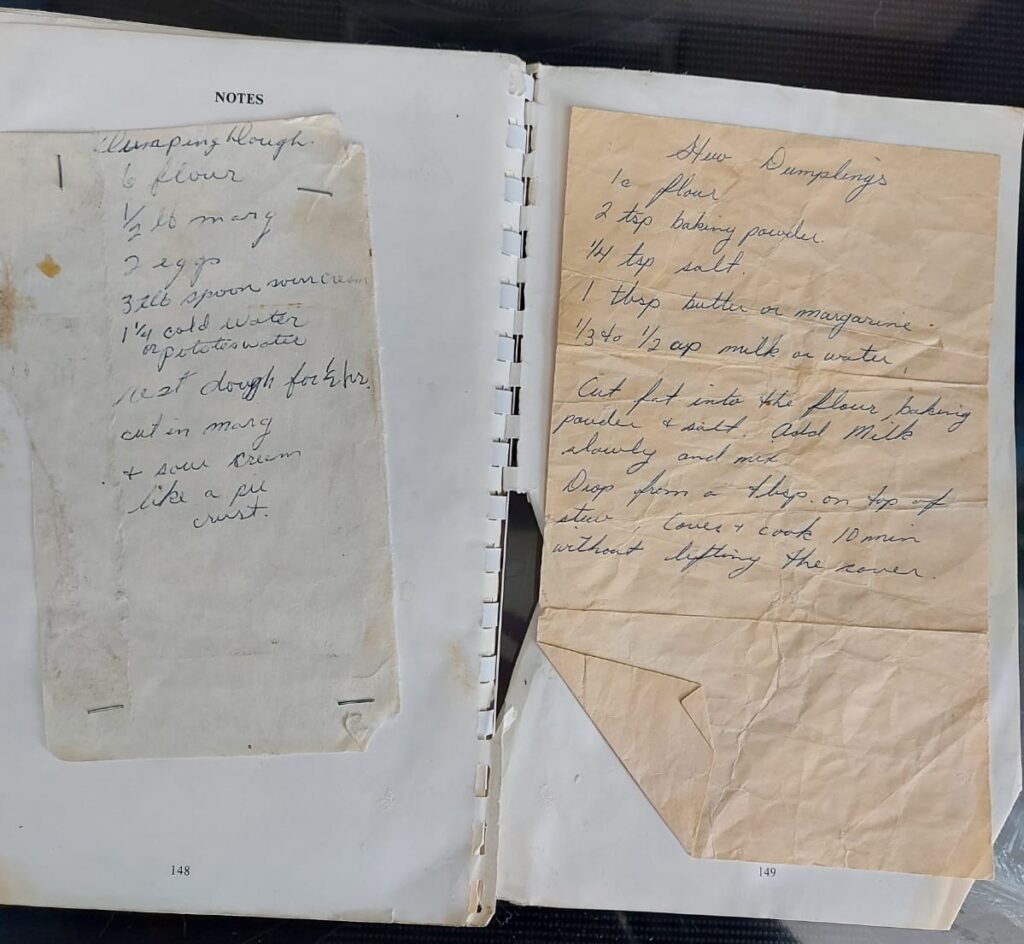 NOTES
Dumping Dough.
6 flour
1/2 lb marg
2 eggs
3 tlb spoon sour cream
1 1/4 cold water
or potates water
rest dough for 1/2 hr.
cut in marg
+ sour cream
like a pie
crust.
148
Stew Dumplings
1 c flour
2 tsp baking powder.
1/4 tsp salt.
1 tbsp butter or margarine.
1/3 to 1/2 cup milk or water,
Cut fat into the flour, baking
powder + salt. Add Milk
slowly and mix
Drop from a tbsp. on top of
stew, Cover + cook 10 min
without lifting the cover.
149